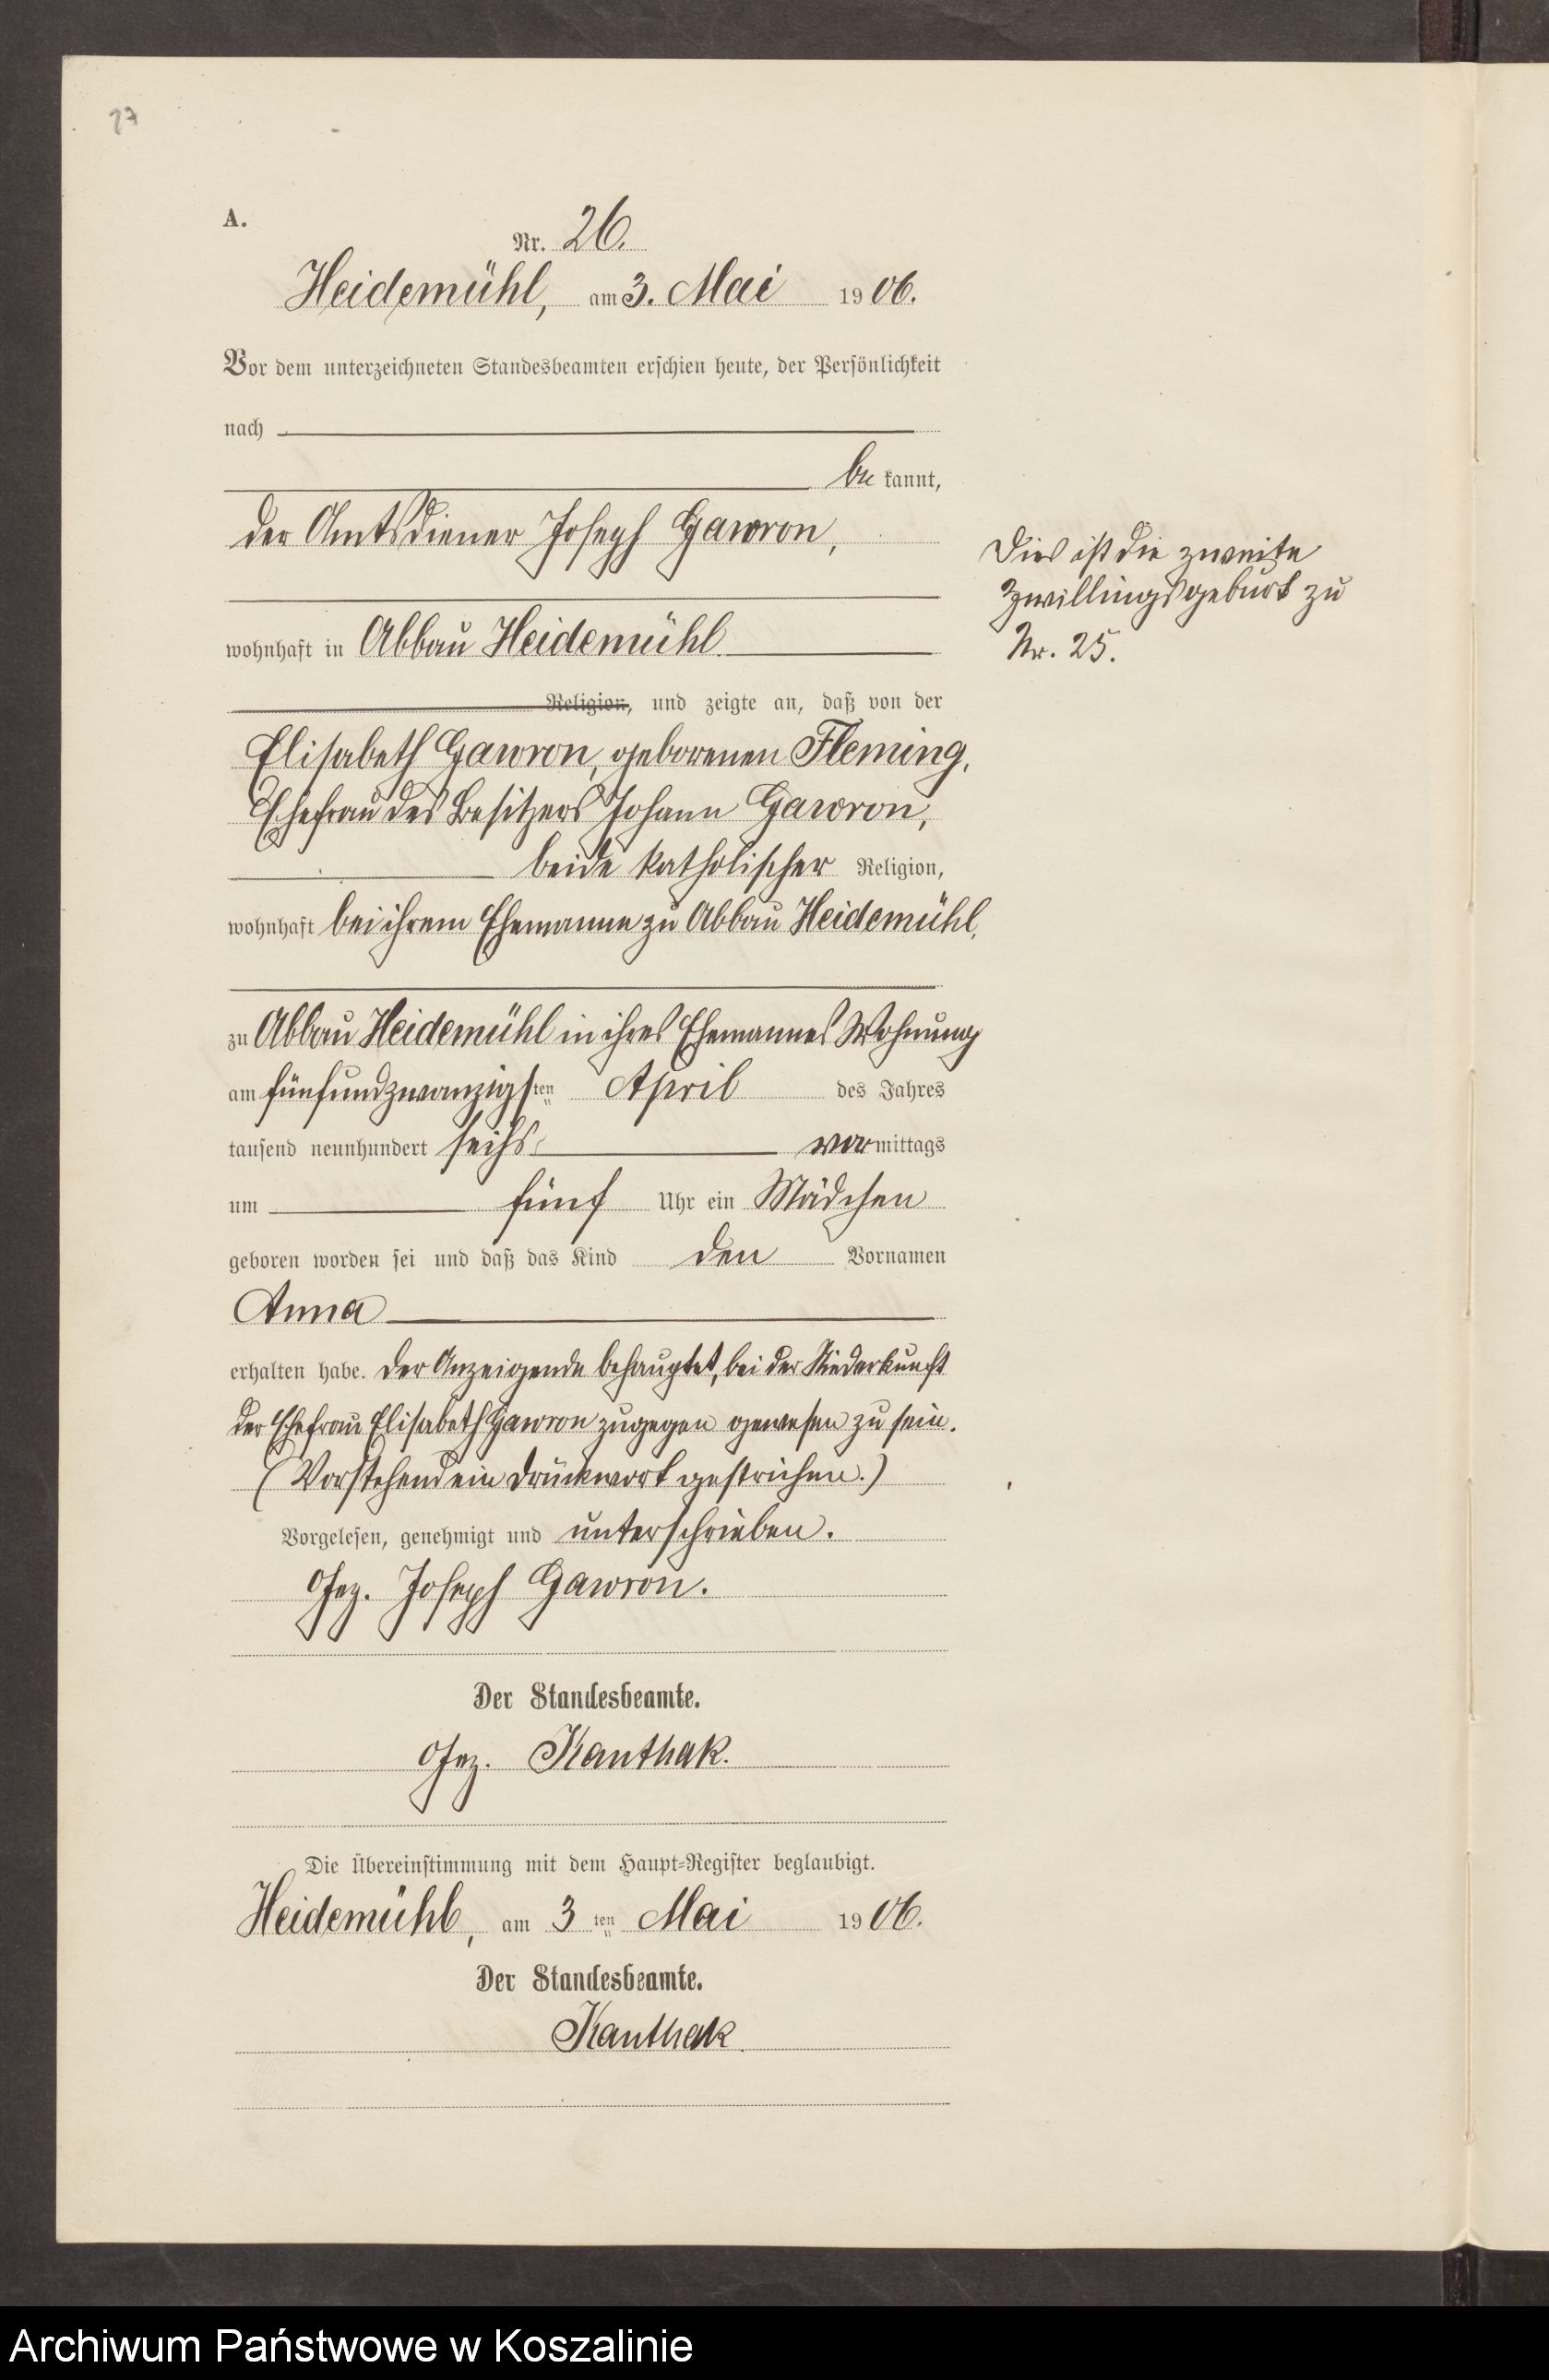 27
A.
Nr. 26.
Heidemühl, am 3. Mai 1906.
Vor dem unterzeichneten Standesbeamten erschien heute, der Persönlichkeit
nach
be kannt,
der Amtsdiener Joseph Gawron,
wohnhaft in Abbau Heidemühl
Religion, und zeigte an, daß von der
Elisabeth Gawron, geborenen Fleming,
Ehefrau des Besitzers Johann Gawron,
beide katholischer Religion,
wohnhaft bei ihrem Ehemanne zu Abbau Heidemühl,
zu Abbau Heidemühl in ihres Ehemannes Wohnung
am fünfundzwanzigsten April des Jahres
tausend neunhundert sechs vormittags
um fünf Uhr ein Mädchen
geboren worden sei und daß das Kind den Vornamen
Anna
erhalten habe. Der Anzeigende behauptet, bei der Niederkunft
der Ehefrau Elisabeth Gawron zugegen gewesen zu sein.
(Vorstehend ein Druckwort gestrichen.)
Vorgelesen, genehmigt und unterschrieben.
Gez. Joseph Gawron.
Der Standesbeamte.
Gez. Kanthak.
Die Übereinstimmung mit dem Haupt-Register beglaubigt.
Heidemühl, am 3ten Mai 1906.
Der Standesbeamte.
Kanthak
Dies ist die zweite
Zwillingsgeburt zu
Nr. 25.
Archiwum Państwowe w Koszalinie